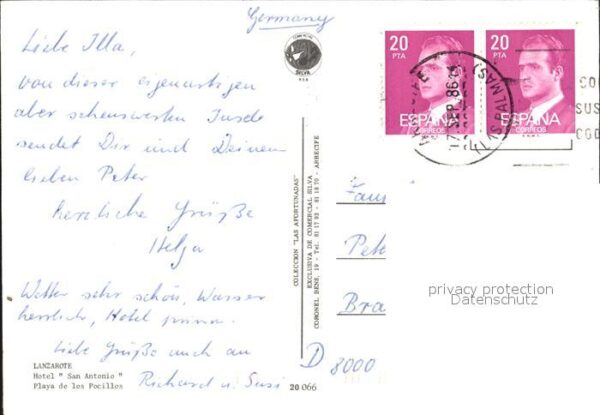 Germany
Liebe Illa,
von dieser eigenartigen
aber sehenswerten Insel
sendet Dir und Deinem
lieben Peter
herzliche Grüße
Helga
Wetter sehr schön, Wasser
herrlich, Hotel prima.
Liebe Grüße auch an
Richard u. Susi
LANZAROTE
Hotel " San Antonio "
Playa de los Pocillos
20 066
SILVA
COLECCION "LAS AFORTUNADAS"
EXCLUSIVA DE COMERCIAL SILVA
CORONEL BENS, 19 - Tel. 81 17 93 - 81 18 70 - ARRECIFE
20
PTA
ESPAÑA
CORREOS
20
PTA
ESPAÑA
CORREOS
17 SEP. 86
(LAS PALMAS)
COR
SUS
COD
Fam
Pet
Bra
D 8000
privacy protection
Datenschutz